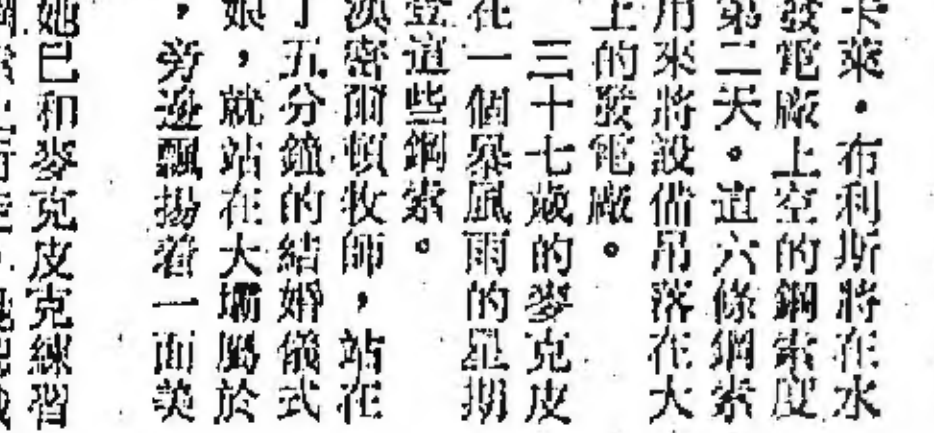 卡萊·布利斯將在水
發電廠上空的鋼索度
第二天。這六條鋼索
用來將設備吊落在大
上的發電廠。
三十七歲的麥克皮
在一個暴風雨的星期
登這些鋼索。
漢密爾頓牧師，站在
了五分鐘的結婚儀式
娘，就站在大壩屬於
，旁邊飄揚着一面美
她已和麥克皮克練習